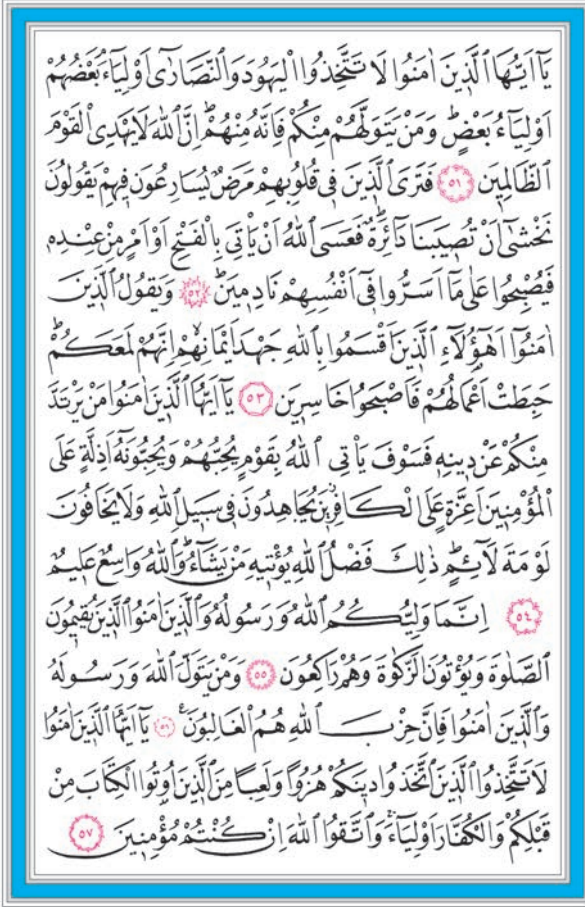 يَٓا اَيُّهَا الَّذٖينَ اٰمَنُوا لَا تَتَّخِذُوا الْيَهُودَ وَالنَّصَارٰٓى اَوْلِيَٓاءَ بَعْضُهُمْ
اَوْلِيَٓاءُ بَعْضٍؕ وَمَنْ يَتَوَلَّهُمْ مِنْكُمْ فَاِنَّهُ مِنْهُمْؕ اِنَّ اللّٰهَ لَا يَهْدِى الْقَوْمَ
الظَّالِمٖينَ ﴿٥١﴾ فَتَرَى الَّذٖينَ فٖى قُلُوبِهِمْ مَرَضٌ يُسَارِعُونَ فٖيهِمْ يَقُولُونَ
نَخْشٰٓى اَنْ تُصٖيبَنَا دَٓائِرَةٌؕ فَعَسَى اللّٰهُ اَنْ يَاْتِىَ بِالْفَتْحِ اَوْ اَمْرٍ مِنْ عِنْدِهٖ
فَيُصْبِحُوا عَلٰى مَٓا اَسَرُّوا فٖٓى اَنْفُسِهِمْ نَادِمٖينَؕ ﴿٥٢﴾ وَيَقُولُ الَّذٖينَ
اٰمَنُٓوا اَهٰٓؤُ۬لَٓاءِ الَّذٖينَ اَقْسَمُوا بِاللّٰهِ جَهْدَ اَيْمَانِهِمْۙ اِنَّهُمْ لَمَعَكُمْؕ
حَبِطَتْ اَعْمَالُهُمْ فَاَصْبَحُوا خَاسِرٖينَ ﴿٥٣﴾ يَٓا اَيُّهَا الَّذٖينَ اٰمَنُوا مَنْ يَرْتَدَّ
مِنْكُمْ عَنْ دٖينِهٖ فَسَوْفَ يَاْتِى اللّٰهُ بِقَوْمٍ يُحِبُّهُمْ وَيُحِبُّونَهُٓ اَذِلَّةٍ عَلَى
الْمُؤْمِنٖينَ اَعِزَّةٍ عَلَى الْكَافِرٖينَؗ يُجَاهِدُونَ فٖى سَبٖيلِ اللّٰهِ وَلَا يَخَافُونَ
لَوْمَةَ لَٓائِمٍؕ ذٰلِكَ فَضْلُ اللّٰهِ يُؤْتٖيهِ مَنْ يَشَٓاءُؕ وَاللّٰهُ وَاسِعٌ عَلٖيمٌ
﴿٥٤﴾ اِنَّمَا وَلِيُّكُمُ اللّٰهُ وَرَسُولُهُ وَالَّذٖينَ اٰمَنُوا الَّذٖينَ يُقٖيمُونَ
الصَّلٰوةَ وَيُؤْتُونَ الزَّكٰوةَ وَهُمْ رَاكِعُونَ ﴿٥٥﴾ وَمَنْ يَتَوَلَّ اللّٰهَ وَرَسُولَهُ
وَالَّذٖينَ اٰمَنُوا فَاِنَّ حِزْبَ اللّٰهِ هُمُ الْغَالِبُونَࣖ ﴿٥٦﴾ يَٓا اَيُّهَا الَّذٖينَ اٰمَنُوا
لَا تَتَّخِذُوا الَّذٖينَ اتَّخَذُوا دٖينَكُمْ هُزُوًا وَلَعِبًا مِنَ الَّذٖينَ اُو۫تُوا الْكِتَابَ مِنْ
قَبْلِكُمْ وَالْكُفَّارَ اَوْلِيَٓاءَۚ وَاتَّقُوا اللّٰهَ اِنْ كُنْتُمْ مُؤْمِنٖينَ ﴿٥٧﴾